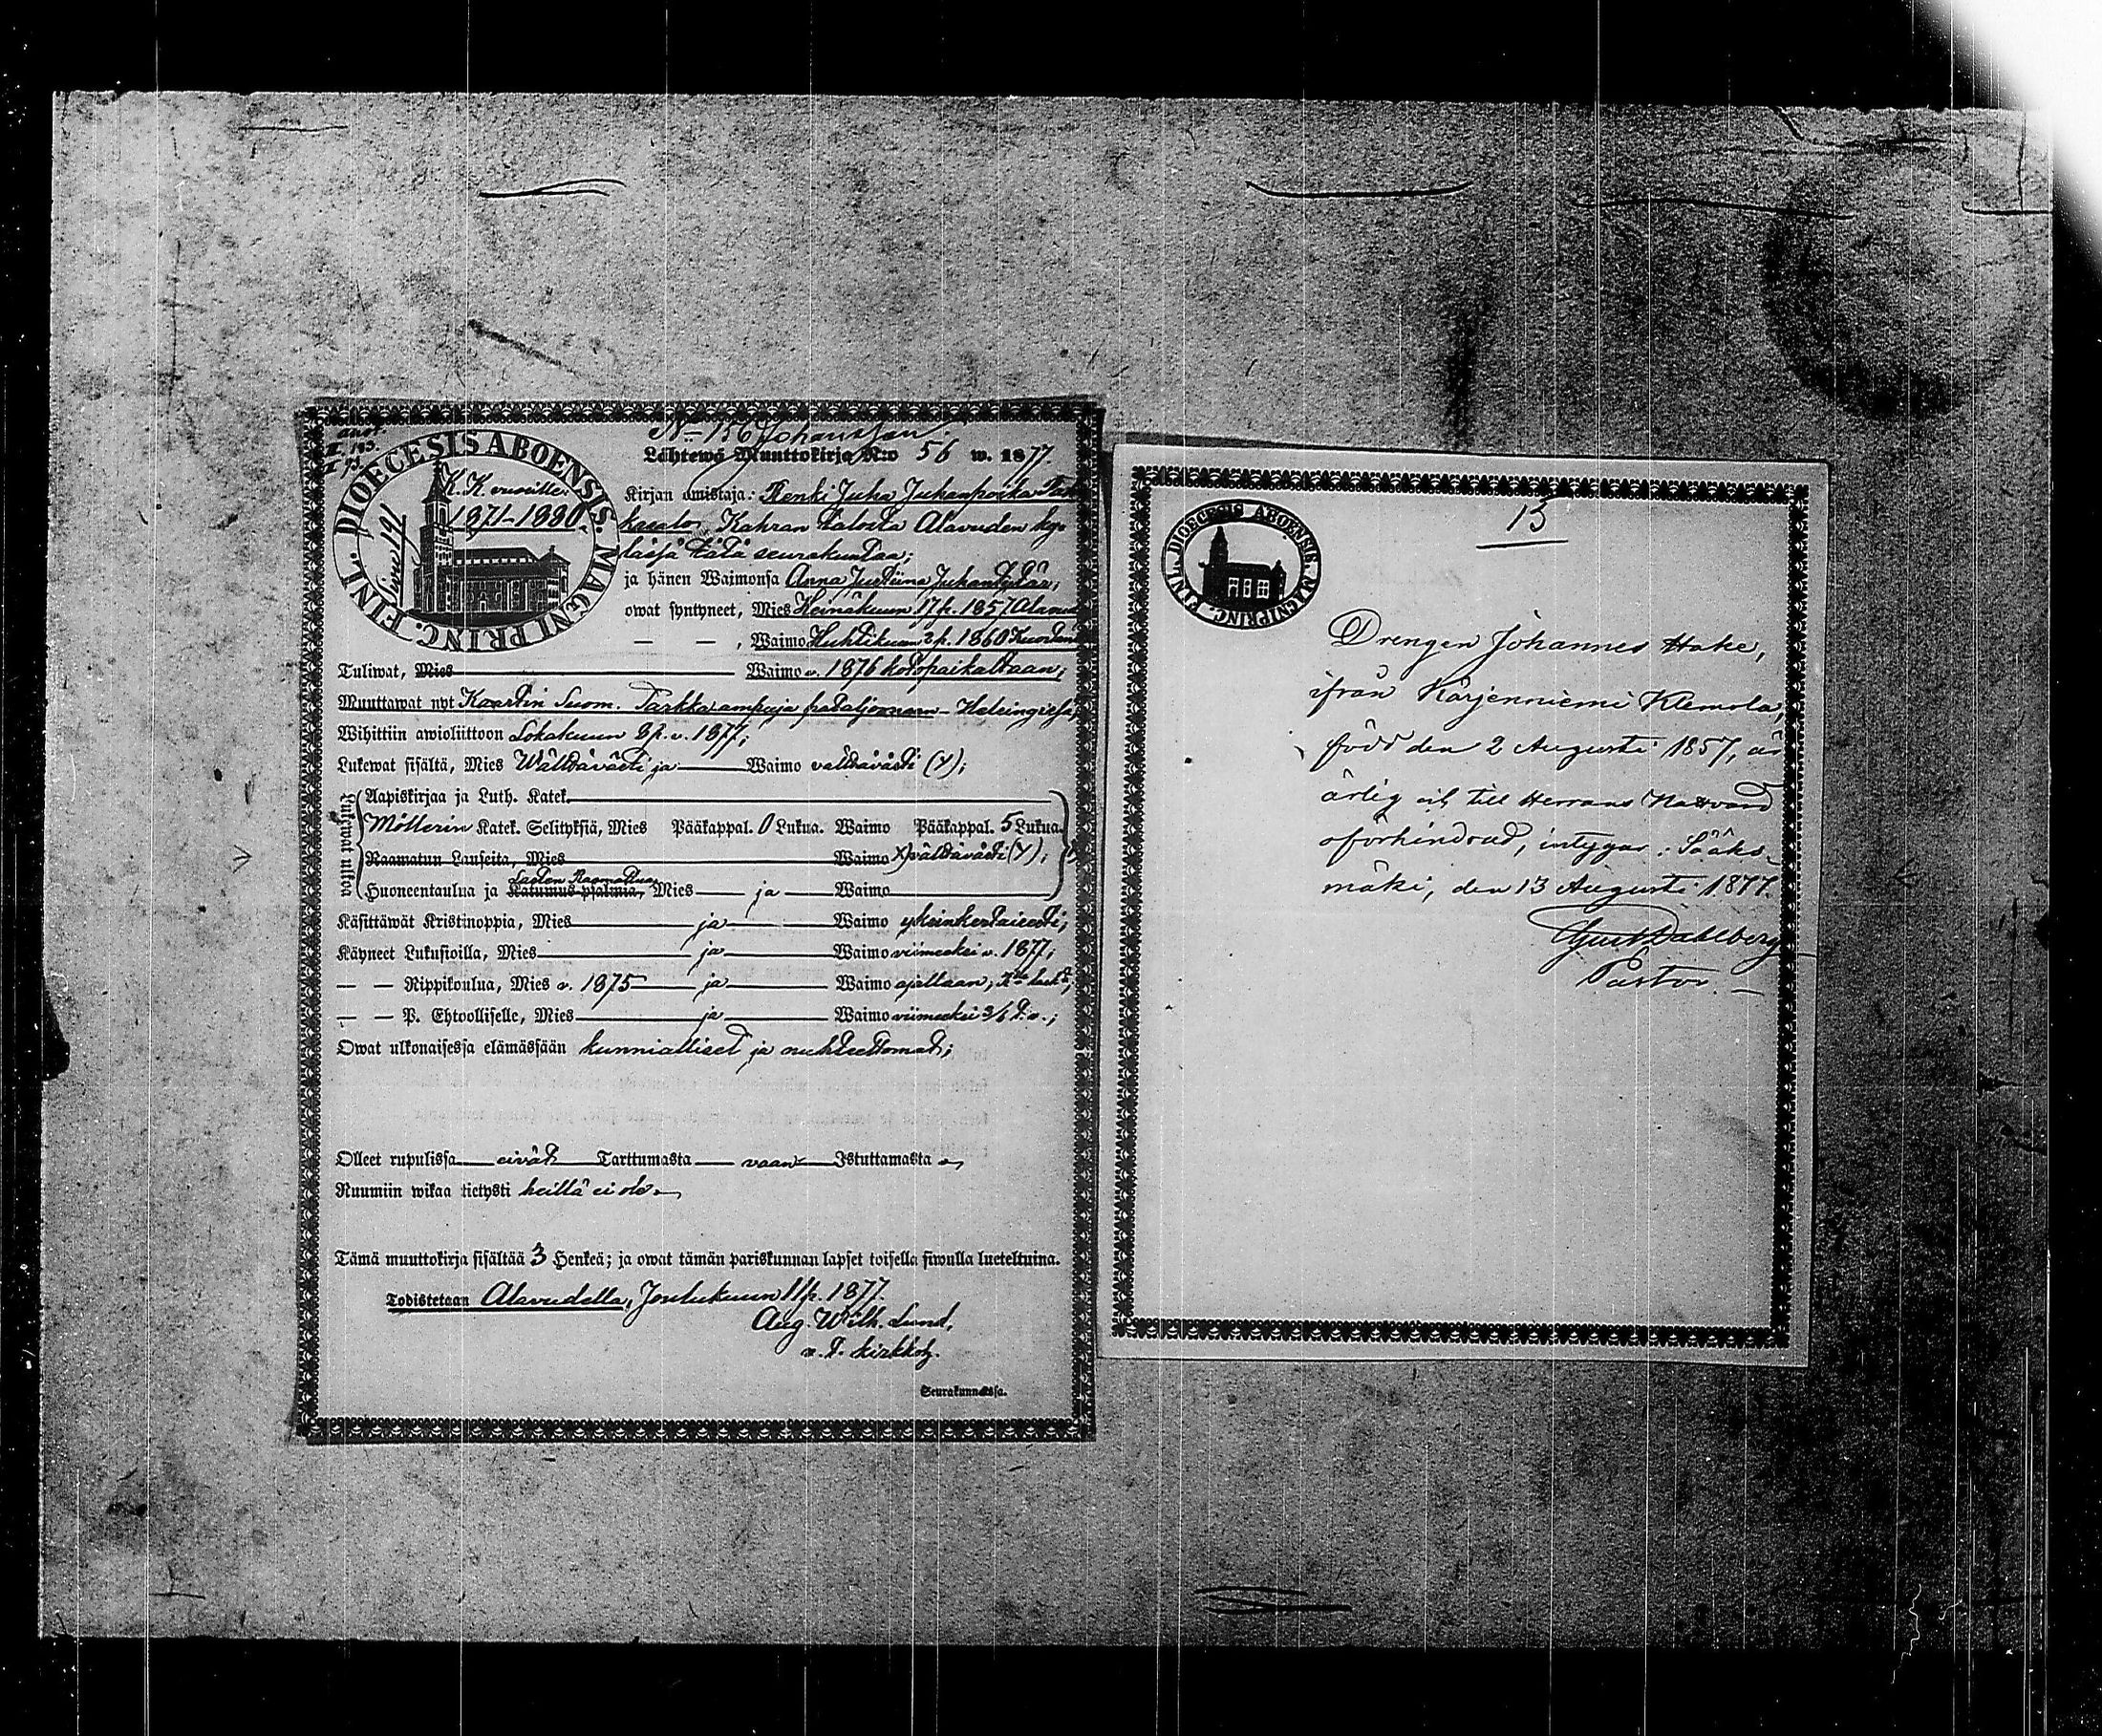 No 156 Johansson
Lähtewä Muuttokirja N:o 56 w. 1877.
DIOECESIS ABOENSIS MAGNI PRINC. FINL.
K. K. vuosille
1871-1880
Sivu 191
Kirjan omistaja: Renki Juha Juhanpoika
Kahran talosta Alavuden ky-
lässä tätä seurakuntaa;
ja hänen Waimonsa Anna Justiina Juhantytär;
owat syntyneet, Mies Heinäkuun 17 p. 1857 Alavud
— — , Waimo Huhtikuun 2 p. 1860 Kuortan
Tuliwat, Mies — Waimo v. 1876 kotopaikaltaan;
Muuttawat nyt Kaartin Suom. Tarkk'ampuja pataljonaan - Helsingissä;
Wihittiin awioliittoon Lokakuun 8 p. v. 1877;
Lukewat sisältä, Mies Wälttävästi ja — Waimo välttävästi (Y);
Lukewat ulkoa
Aapiskirjaa ja Luth. Katek.
Möllerin Katek. Selityksiä, Mies Pääkappal. 0 Lukua. Waimo Pääkappal. 5 Lukua.
Raamatun Lauseita, Mies — Waimo välttävästi (Y);
Lasten Raamattua
Huoneentaulua ja Katumus-psalmia, Mies — ja — Waimo
Käsittäwät Kristinoppia, Mies — ja — Waimo yksinkertaisesti;
Käyneet Lukusioilla, Mies — ja — Waimo viimeksi v. 1877;
— — Rippikoulua, Mies v. 1875 — ja — Waimo ajallaan;
— — P. Ehtoolliselle, Mies — ja — Waimo viimeksi 3/6 t. v.;
Owat ulkonaisessa elämässään kunnialliset ja nuhteettomat;
Olleet rupulissa — eivät — Tarttumasta — vaan — Istuttamasta
Ruumiin wikaa tietysti heillä ei ole
Tämä muuttokirja sisältää 3 Henkeä; ja owat tämän pariskunnan lapset toisella siwulla lueteltuina.
Todistetaan Alavudella, Joulukuun 11 p. 1877.
Aug. Wilh. Lund,
v. t. kirkkoh.
Seurakunnassa.
13
DIOECESIS ABOENSIS MAGNI PRINC. FINL.
Drengen Johannes Hake,
ifrån Kärjenniemi Klemola,
född den 2 Augusti 1857, är
ärlig och till Herrans Nattvard
oförhindrad, intygar: Sääks-
mäki, den 13 Augusti 1877.
Gust Dahlberg
Pastor.